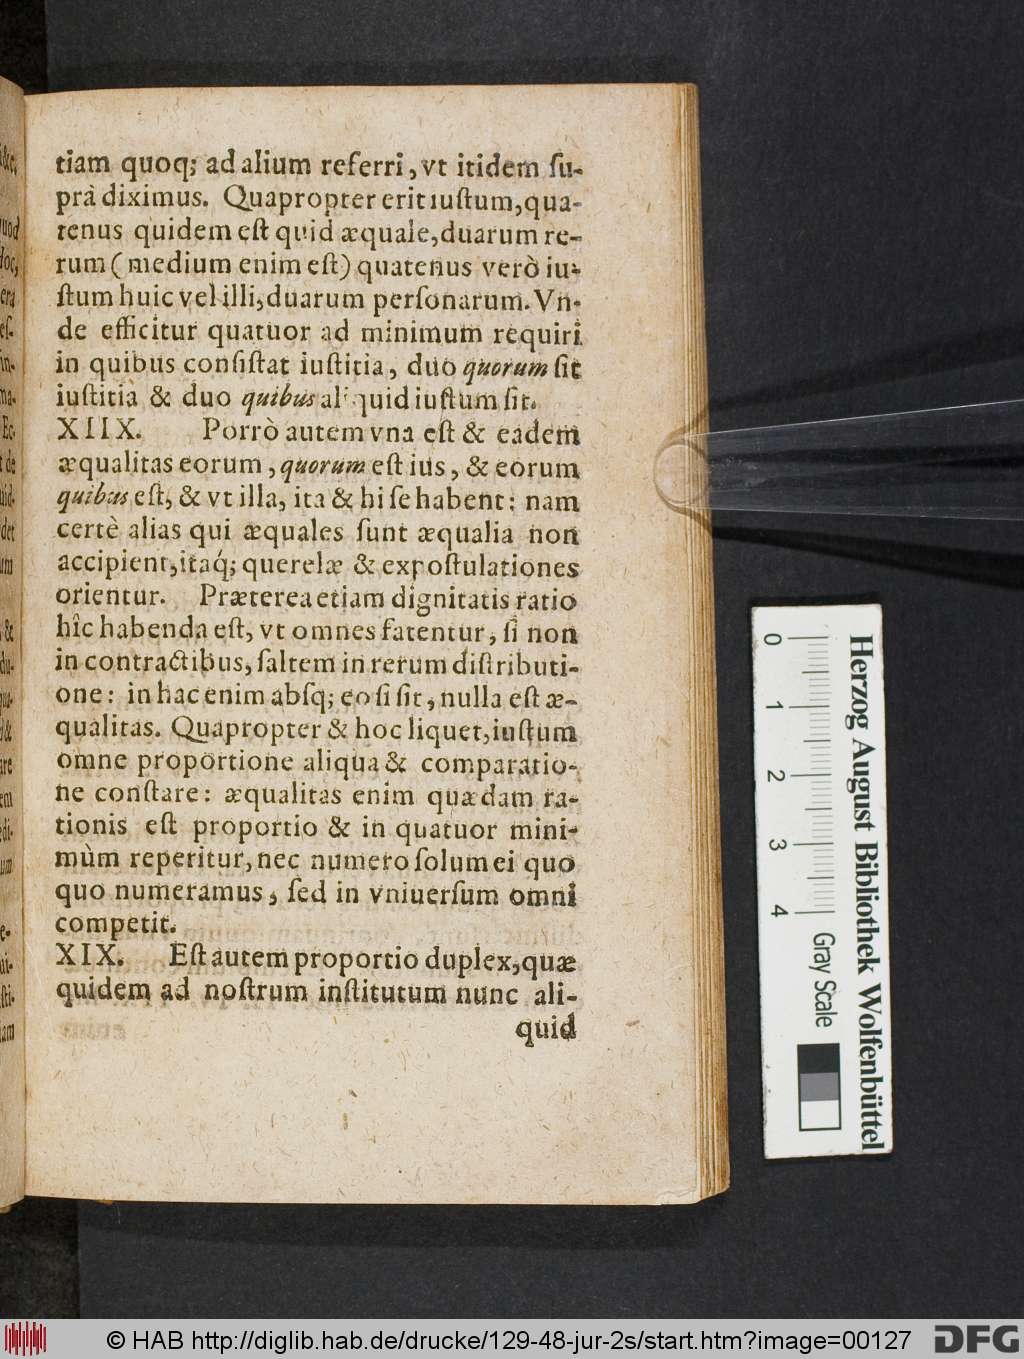 tiam quoq; ad alium referri, vt itidem ſu-
prà diximus. Quapropter erit iuſtum, qua-
tenus quidem eſt quid æquale, duarum re-
rum ( medium enim eſt) quatenus verò iu-
ſtum huic vel illi, duarum perſonarum. Vn-
de efficitur quatuor ad minimum requiri
in quibus conſiſtat iuſtitia, duo quorum ſit
iuſtitia & duo quibus aliquid iuſtum ſit.
XIIX. Porrò autem vna eſt & eadem
æqualitas eorum, quorum eſt ius, & eorum
quibus eſt, & vt illa, ita & hi ſe habent: nam
certè alias qui æquales ſunt æqualia non
accipient, itaq́; querelæ & expoſtulationes
orientur. Præterea etiam dignitatis ratio
hîc habenda eſt, vt omnes fatentur, ſi non
in contractibus, ſaltem in rerum diſtributi-
one: in hac enim abſq; eo ſi ſit, nulla eſt æ-
qualitas. Quapropter & hoc liquet, iuſtum
omne proportione aliqua & comparatio-
ne conſtare: æqualitas enim quædam ra-
tionis eſt proportio & in quatuor mini-
mùm reperitur, nec numero ſolum ei quo
quo numeramus, ſed in vniuerſum omni
competit.
XIX. Eſt autem proportio duplex, quæ
quidem ad noſtrum inſtitutum nunc ali-
quid
0 1 2 3 4
Gray Scale
Herzog August Bibliothek Wolfenbüttel
© HAB http://diglib.hab.de/drucke/129-48-jur-2s/start.htm?image=00127
DFG